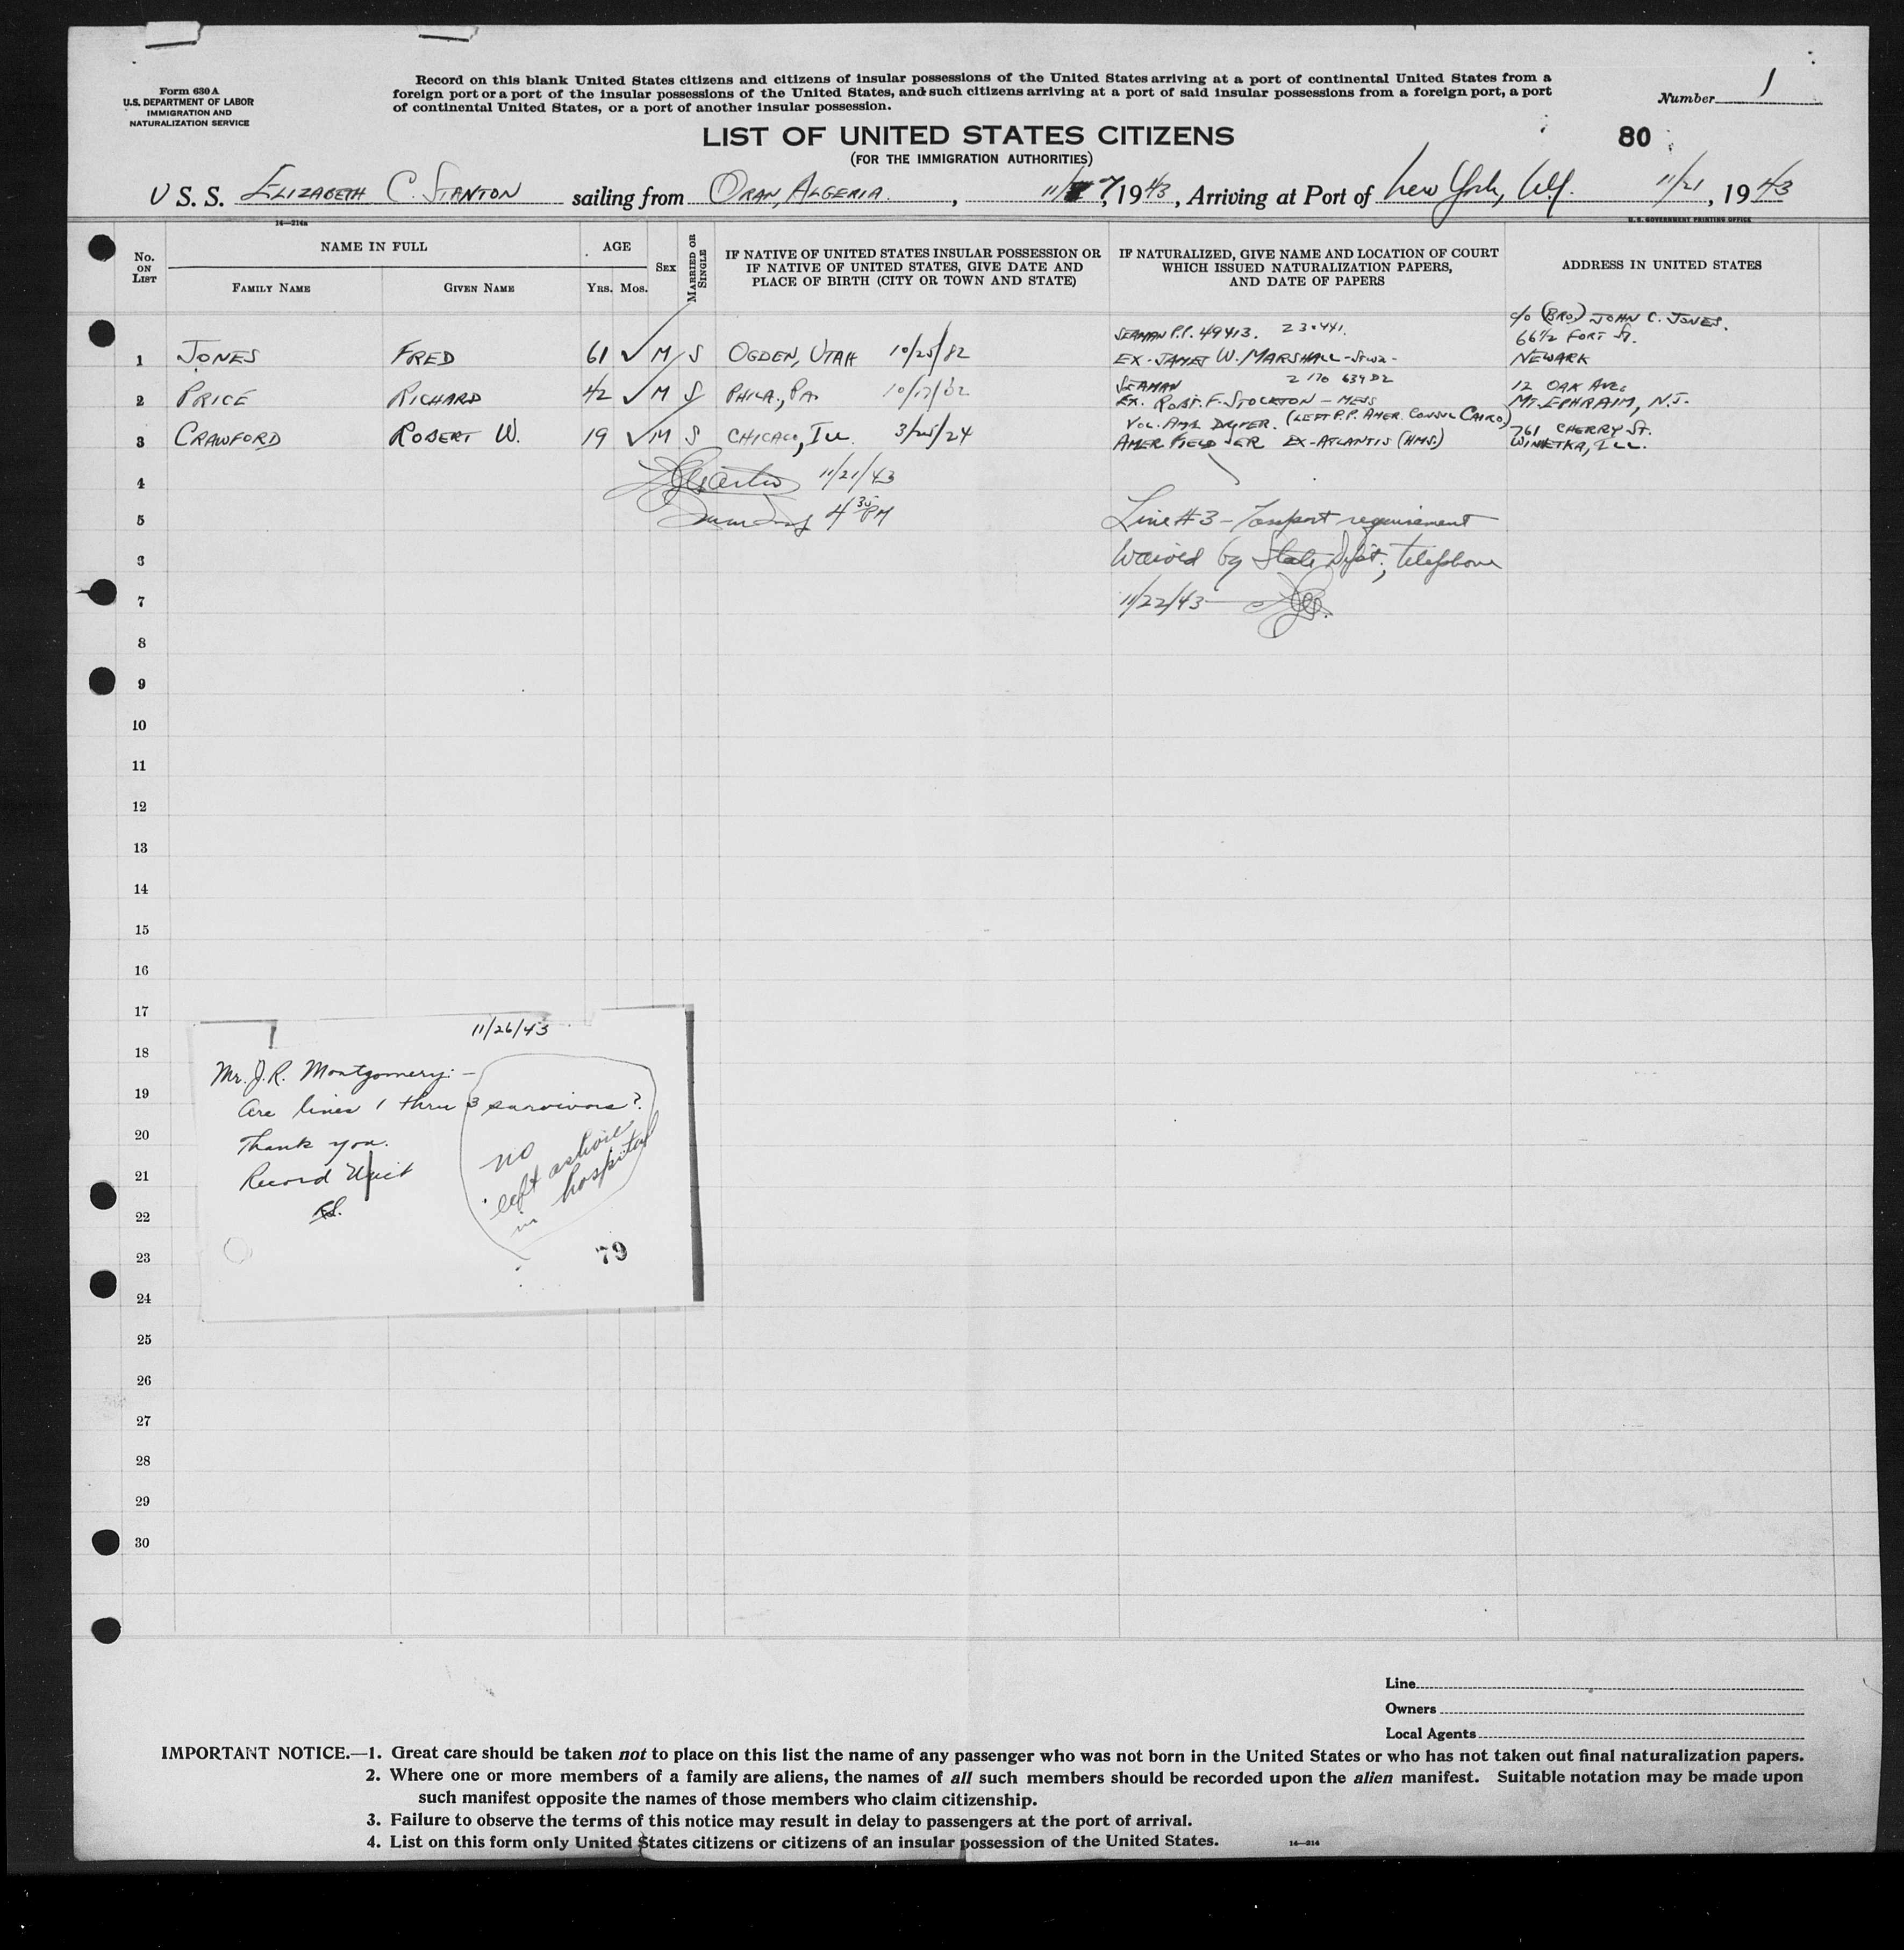 Form 630 A
U.S. DEPARTMENT OF LABOR
IMMIGRATION AND
NATURALIZATION SERVICE
Record on this blank United States citizens and citizens of insular possessions of the United States arriving at a port of continental United States from a
foreign port or a port of the insular possessions of the United States, and such citizens arriving at a port of said insular possessions from a foreign port, a port
of continental United States, or a port of another insular possession.
Number 1
LIST OF UNITED STATES CITIZENS
80
(FOR THE IMMIGRATION AUTHORITIES)
U S. S. ELIZABETH C. STANTON sailing from ORAN, ALGERIA. , 11/7, 1943, Arriving at Port of New York, N.Y. 11/21, 1943
14—214a
U. S. GOVERNMENT PRINTING OFFICE
No. ON LIST
NAME IN FULL
FAMILY NAME GIVEN NAME
AGE
YRS. MOS.
SEX
MARRIED OR SINGLE
IF NATIVE OF UNITED STATES INSULAR POSSESSION OR
IF NATIVE OF UNITED STATES, GIVE DATE AND
PLACE OF BIRTH (CITY OR TOWN AND STATE)
IF NATURALIZED, GIVE NAME AND LOCATION OF COURT
WHICH ISSUED NATURALIZATION PAPERS,
AND DATE OF PAPERS
ADDRESS IN UNITED STATES
SEAMAN P.P. 49413. c/o (BRO) JOHN C. JONES.
66½ FORT St.
1 JONES FRED 61 ✓ M S OGDEN, UTAH 10/25/82 EX- JAMES W. MARSHALL - NEWARK
SEAMAN 12 OAK AVE.
2 PRICE RICHARD 42 ✓ M S PHILA., PA. EX. ROBT. F. STOCKTON - MESS MT. EPHRAIM, N.J.
VOL. DRIVER. (LEFT P.P. AMER. CONSUL CAIRO) 761 CHERRY ST.
3 CRAWFORD ROBERT W. 19 ✓ M S CHICAGO, ILL. 3/25/24 AMER. FIELD SER EX-ATLANTIS (HMS.) WINETKA, ILL.
4 11/21/43
5 4 35 PM Line #3 - Passport requirement
6 waived by State Dept., telephone
7 11/22/43
8
9
10
11
12
13
14
15
16
17
18
19
20
21
22
23
24
25
26
27
28
29
30
11/26/43
Mr. J.R. Montgomery: -
Are lines 1 thru 3 survivors?
Thank you.
Record Unit
no
left
in hospital
79
Line
Owners
Local Agents
IMPORTANT NOTICE.—1. Great care should be taken not to place on this list the name of any passenger who was not born in the United States or who has not taken out final naturalization papers.
2. Where one or more members of a family are aliens, the names of all such members should be recorded upon the alien manifest. Suitable notation may be made upon
such manifest opposite the names of those members who claim citizenship.
3. Failure to observe the terms of this notice may result in delay to passengers at the port of arrival.
4. List on this form only United States citizens or citizens of an insular possession of the United States.
14—214